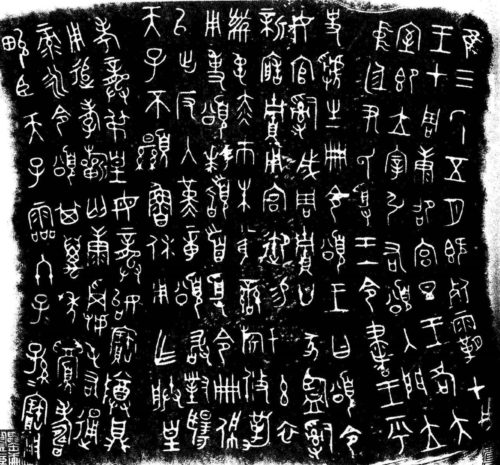 隹三年五月既死霸甲戌
王才周康卲宮旦王各大
室即立宰弘右頌入門立
中廷尹氏受王令書王乎
史虢生冊令頌王曰頌令
女官𤔲成周貯廿家監𤔲
新造貯用宮御易女玄衣
黹屯赤巿朱黃䜌旂攸勒
用事頌拜𩒨首受令冊佩
以出反入堇章頌敢對揚
天子不顯魯休用乍朕皇
考龏弔皇母龏始寶尊鼎
用追孝祈匄康𩁹屯右通
彔永令頌其萬年眉壽
畯臣天子霝冬子孫寶用